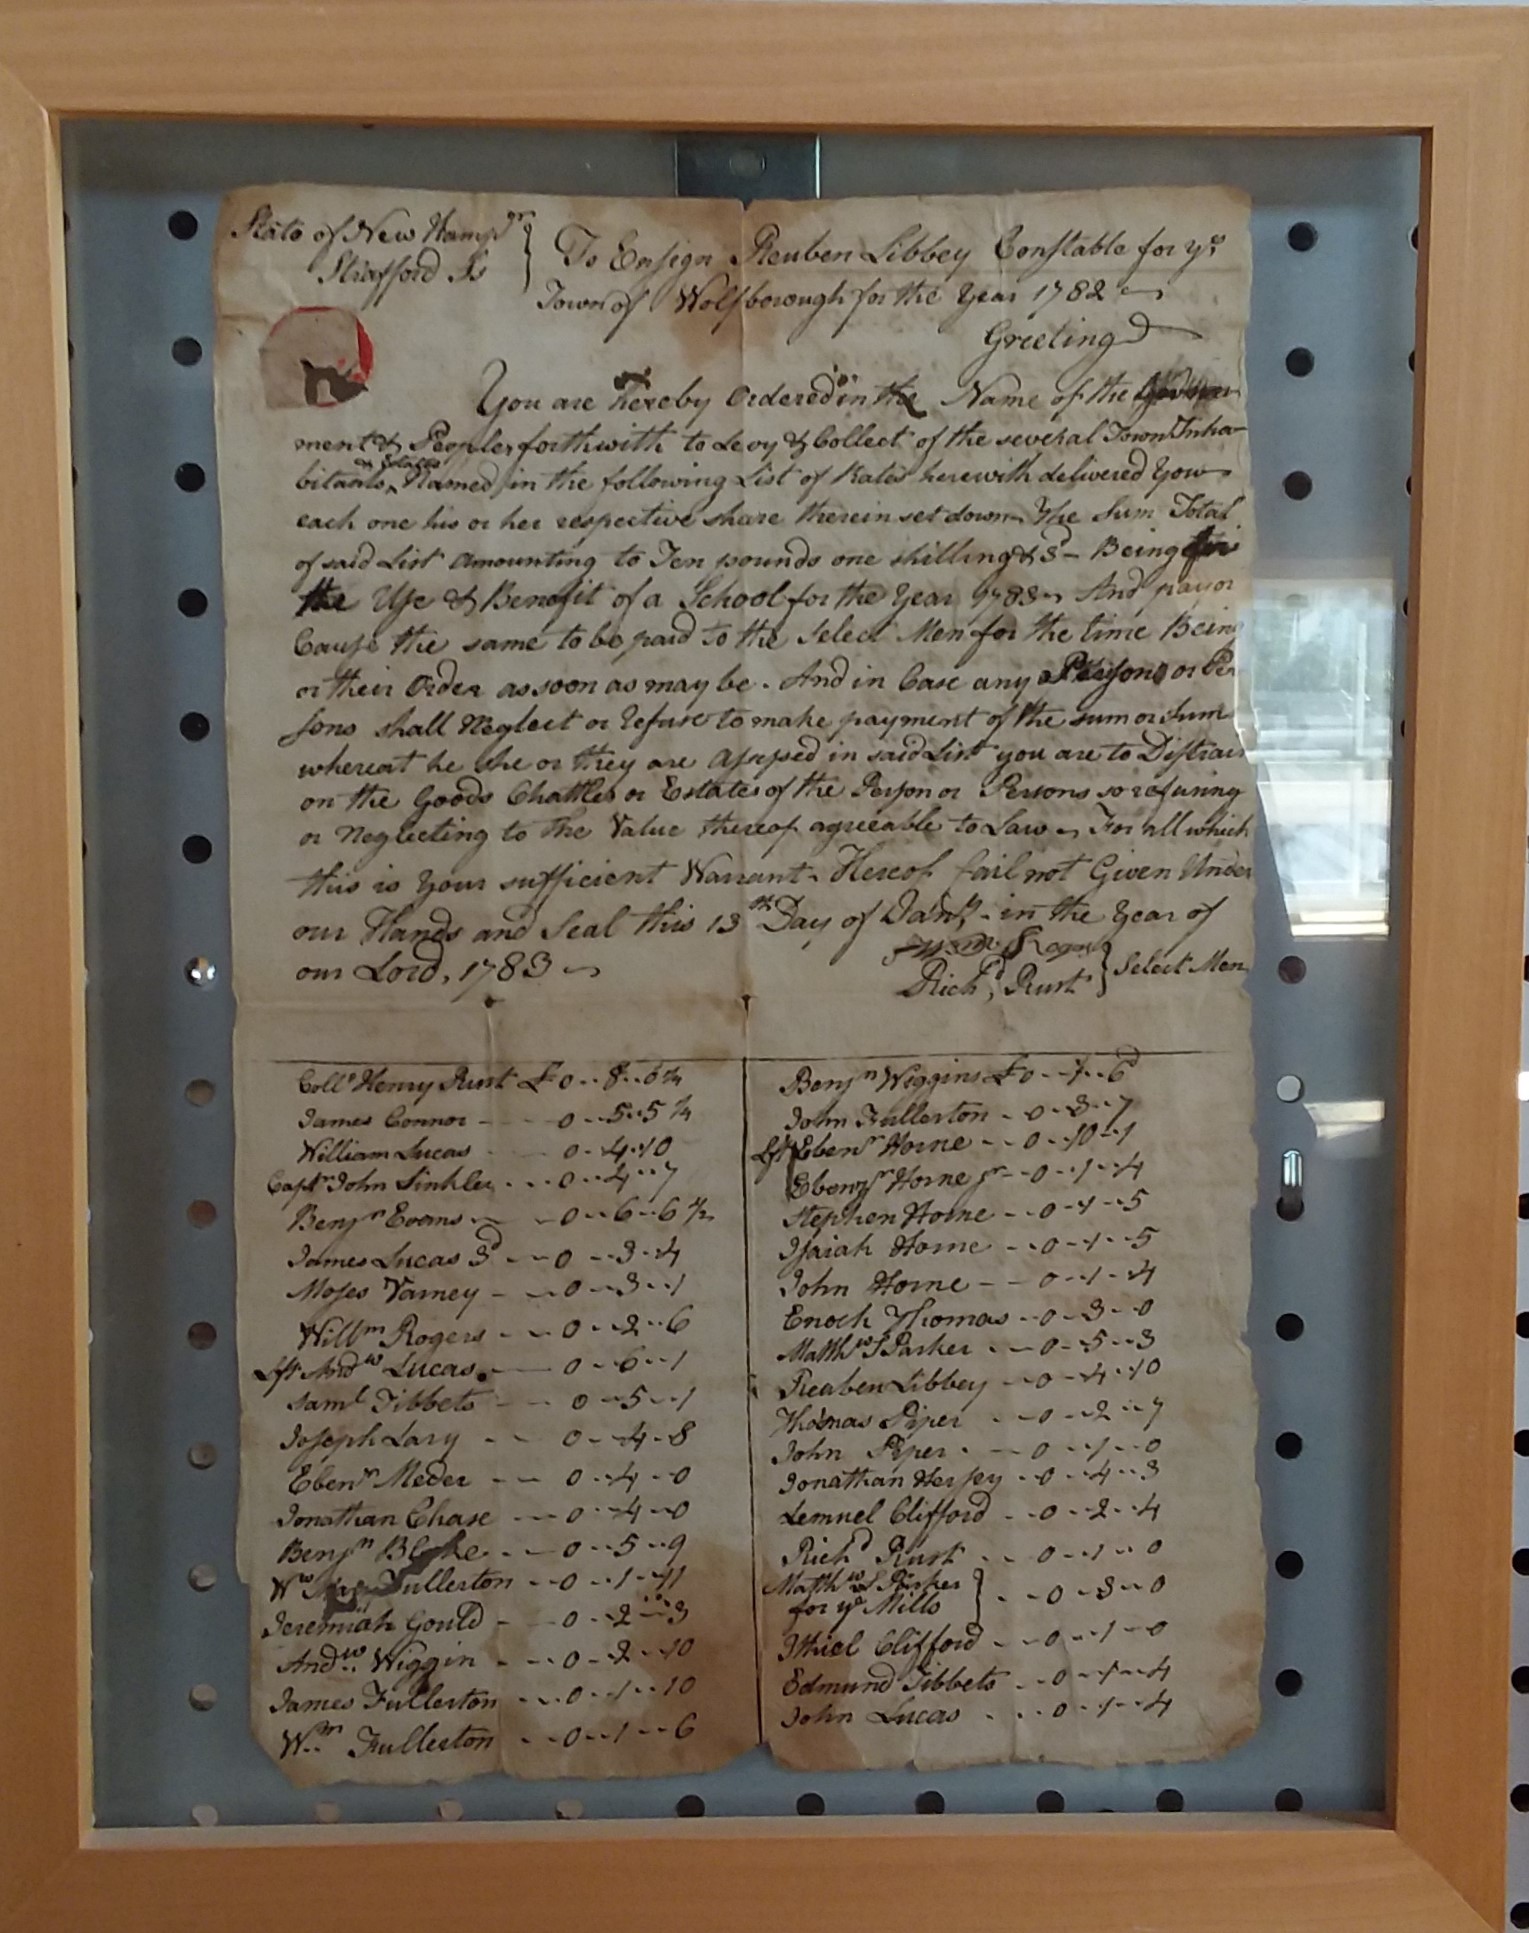 State of New Hampsr
Strafford Ss
To Ensign Reuben Libbey Constable for ye
Town of Wolfborough for the Year 1782
Greeting
You are hereby Ordered in the Name of the Govern
ment & People forthwith to Levy & Collect of the several Town Inha
bitants Named in the following List of Rates herewith delivered You
or Estates
each one his or her respective share therein set down The Sum Total
of said List Amounting to Ten pounds one shilling & 3d - Being for
the Use & Benefit of a School for the Year 1783 And pay or
Cause the same to be paid to the Select Men for the time Being
or their Order as soon as may be. And in Case any Person or Per
sons shall Neglect or refuse to make payment of the sum or sums
whereat he she or they are Assessed in said List you are to Distrain
on the Goods Chattles or Estates of the Person or Persons so refusing
or Neglecting to the Value thereof agreeable to Law For all which
this is Your sufficient Warrant. Hereof fail not Given Under
our Hands and Seal this 13th Day of Jany. in the Year of
our Lord, 1783
Richd Rust } Select Men
Coll Henry Rust £0..8..6 3/4
James Connor - 0..5..5 1/4
William Lucas 0..4..10
Captn John Sinkler ... 0..4..7
Benjn Evans - 0..6..6 1/2
James Lucas 3d - 0..3..4
Moses Varney - 0..3..1
Willm Rogers - 0..2..6
Lft Andw Lucas - 0..6..1
Saml Tibbets - 0..5..1
Joseph Lary - 0..4..8
Ebenr Meder - 0..4..0
Jonathan Chase - 0..4..0
Benjn Blake - 0..5..9
Ww Fullerton - 0..1..11
Jeremiah Gould - 0..2..3
Andw Wiggin - 0..2..10
James Fullerton - 0..1..10
Wm Fullerton - 0..1..6
Benjn Wiggins £0..7..6d
John Fullerton - 0..3..7
Lft Ebenr Horne - 0..10..1
Ebenzr Horne jr - 0..1..4
Stephen Horne - 0..1..5
Isaiah Horne - 0..1..5
John Horne - 0..1..4
Enoch Thomas - 0..3..0
Matthw S Parker - 0..5..3
Reuben Libbey - 0..4..10
Thomas Piper - 0..2..7
John Piper - 0..1..0
Jonathan Hersey - 0..4..3
Lemuel Clifford - 0..2..4
Richd Rust - 0..1..0
Matthw S Parker
for ye Mills } - 0..3..0
Ithiel Clifford - 0..1..0
Edmund Tibbets - 0..1..4
John Lucas - 0..1..4